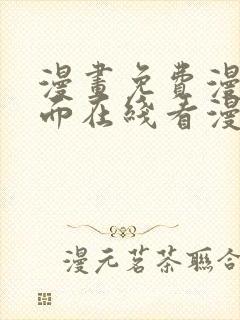 漫畫免費漫
而在綫看漫
漫元茗茶聯合